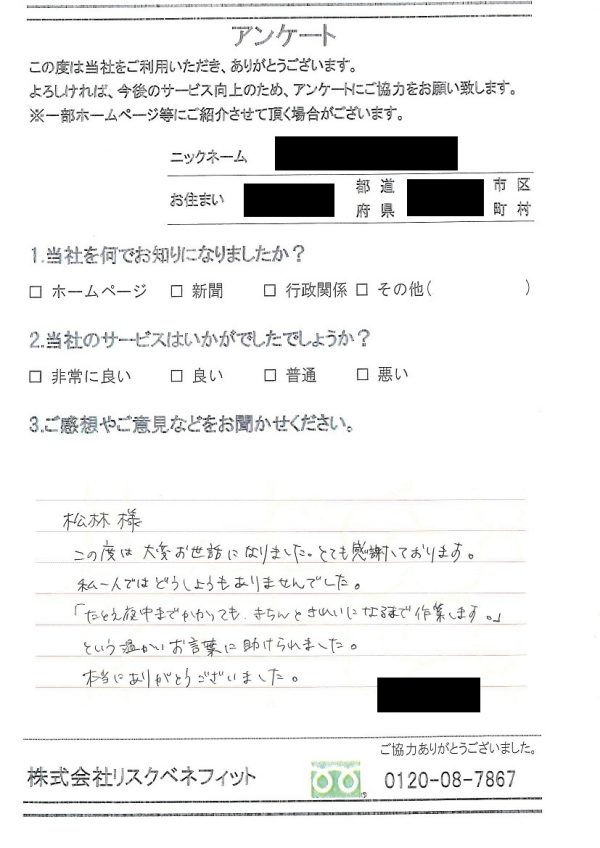 アンケート
この度は当社をご利用いただき、ありがとうございます。
よろしければ、今後のサービス向上のため、アンケートにご協力をお願い致します。
※一部ホームページ等にご紹介させて頂く場合がございます。
ニックネーム
お住まい 都道府県 市区町村
1.当社を何でお知りになりましたか？
□ ホームページ □ 新聞 □ 行政関係 □ その他( )
2.当社のサービスはいかがでしたでしょうか？
□ 非常に良い □ 良い □ 普通 □ 悪い
3.ご感想やご意見などをお聞かせください。
松林 様
この度は大変お世話になりました。とても感謝しております。
私一人ではどうしようもありませんでした。
「たとえ夜中までかかっても、きちんときれいになるまで作業します。」
という温かいお言葉に助けられました。
本当にありがとうございました。
ご協力ありがとうございました。
株式会社リスクベネフィット 0120-08-7867